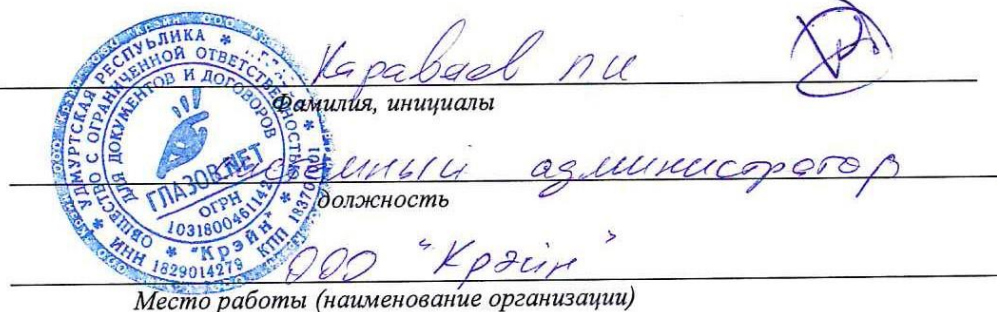 Караваев ПИ
Фамилия, инициалы
системный администратор
должность
ООО "Крэйн"
Место работы (наименование организации)
* УДМУРТСКАЯ РЕСПУБЛИКА *
ОБЩЕСТВО С ОГРАНИЧЕННОЙ ОТВЕТСТВЕННОСТЬЮ
* "Крэйн" *
ДЛЯ ДОКУМЕНТОВ И ДОГОВОРОВ
ГЛАЗОВ.NET
ОГРН
ИНН 1829014279 КПП